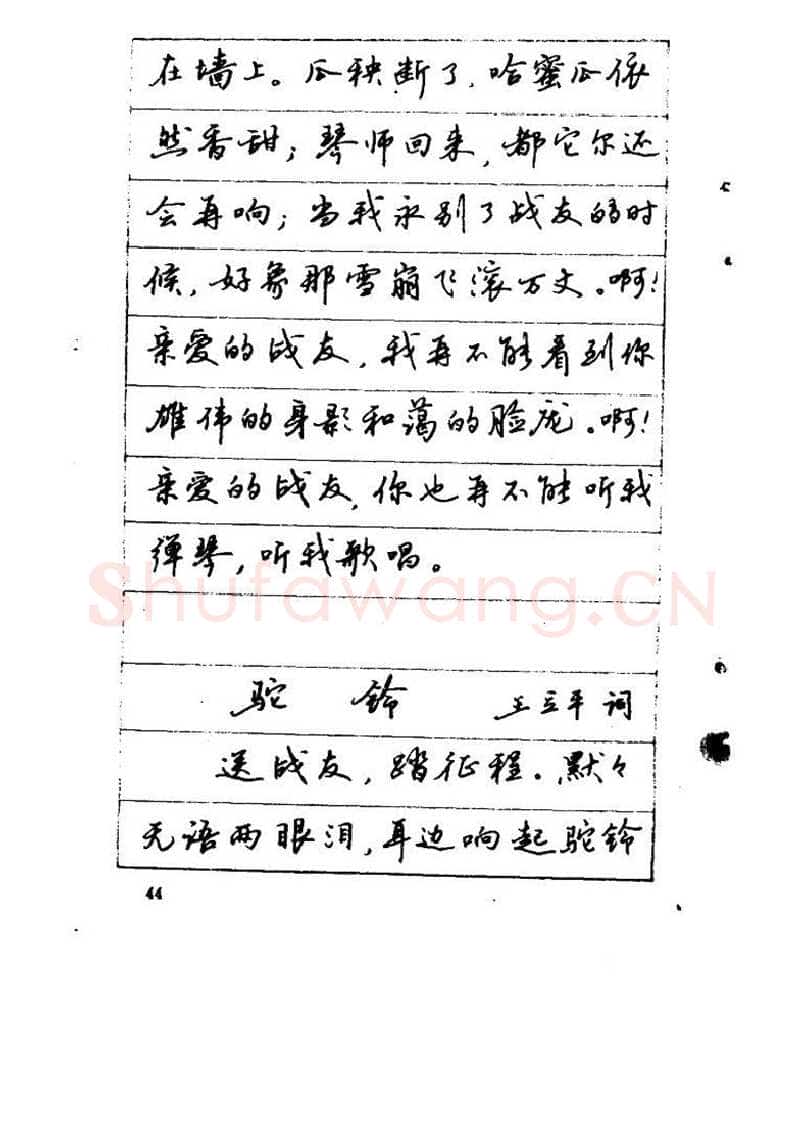 在墙上。瓜秧断了，哈蜜瓜依
然香甜；琴师回来，都它尔还
会再响；当我永别了战友的时
候，好象那雪崩飞滚万丈。啊！
亲爱的战友，我再不能看到你
雄伟的身影和蔼的脸庞。啊！
亲爱的战友，你也再不能听我
弹琴，听我歌唱。
Shufawang.CN
驼 铃 王立平 词
送战友，踏征程。默々
无语两眼泪，耳边响起驼铃
44